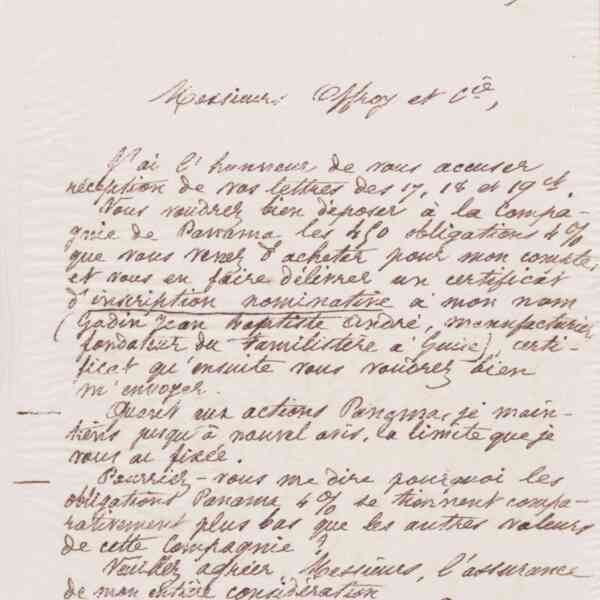 Messieurs Offroy et Cie,
J'ai l'honneur de vous accuser
réception de vos lettres des 17, 18 et 19 ct.
Vous voudrez bien déposer à la Compa-
gnie de Panama les 450 obligations 4%
que vous venez d'acheter pour mon compte,
et vous en faire délivrer un certificat
d'inscription nominative à mon nom
(Godin Jean Baptiste André, manufacturier,
fondateur du Familistère à Guise), certi-
ficat qu'ensuite vous voudrez bien
m'envoyer.
Quant aux actions Panama, je main-
tiens jusqu'à nouvel avis, la limite que je
vous ai fixée.
Pourriez-vous me dire pourquoi les
obligations Panama 4% se tiennent compa-
rativement plus bas que les autres valeurs
de cette Compagnie ?
Veuillez agréer, Messieurs, l'assurance
de mon entière considération